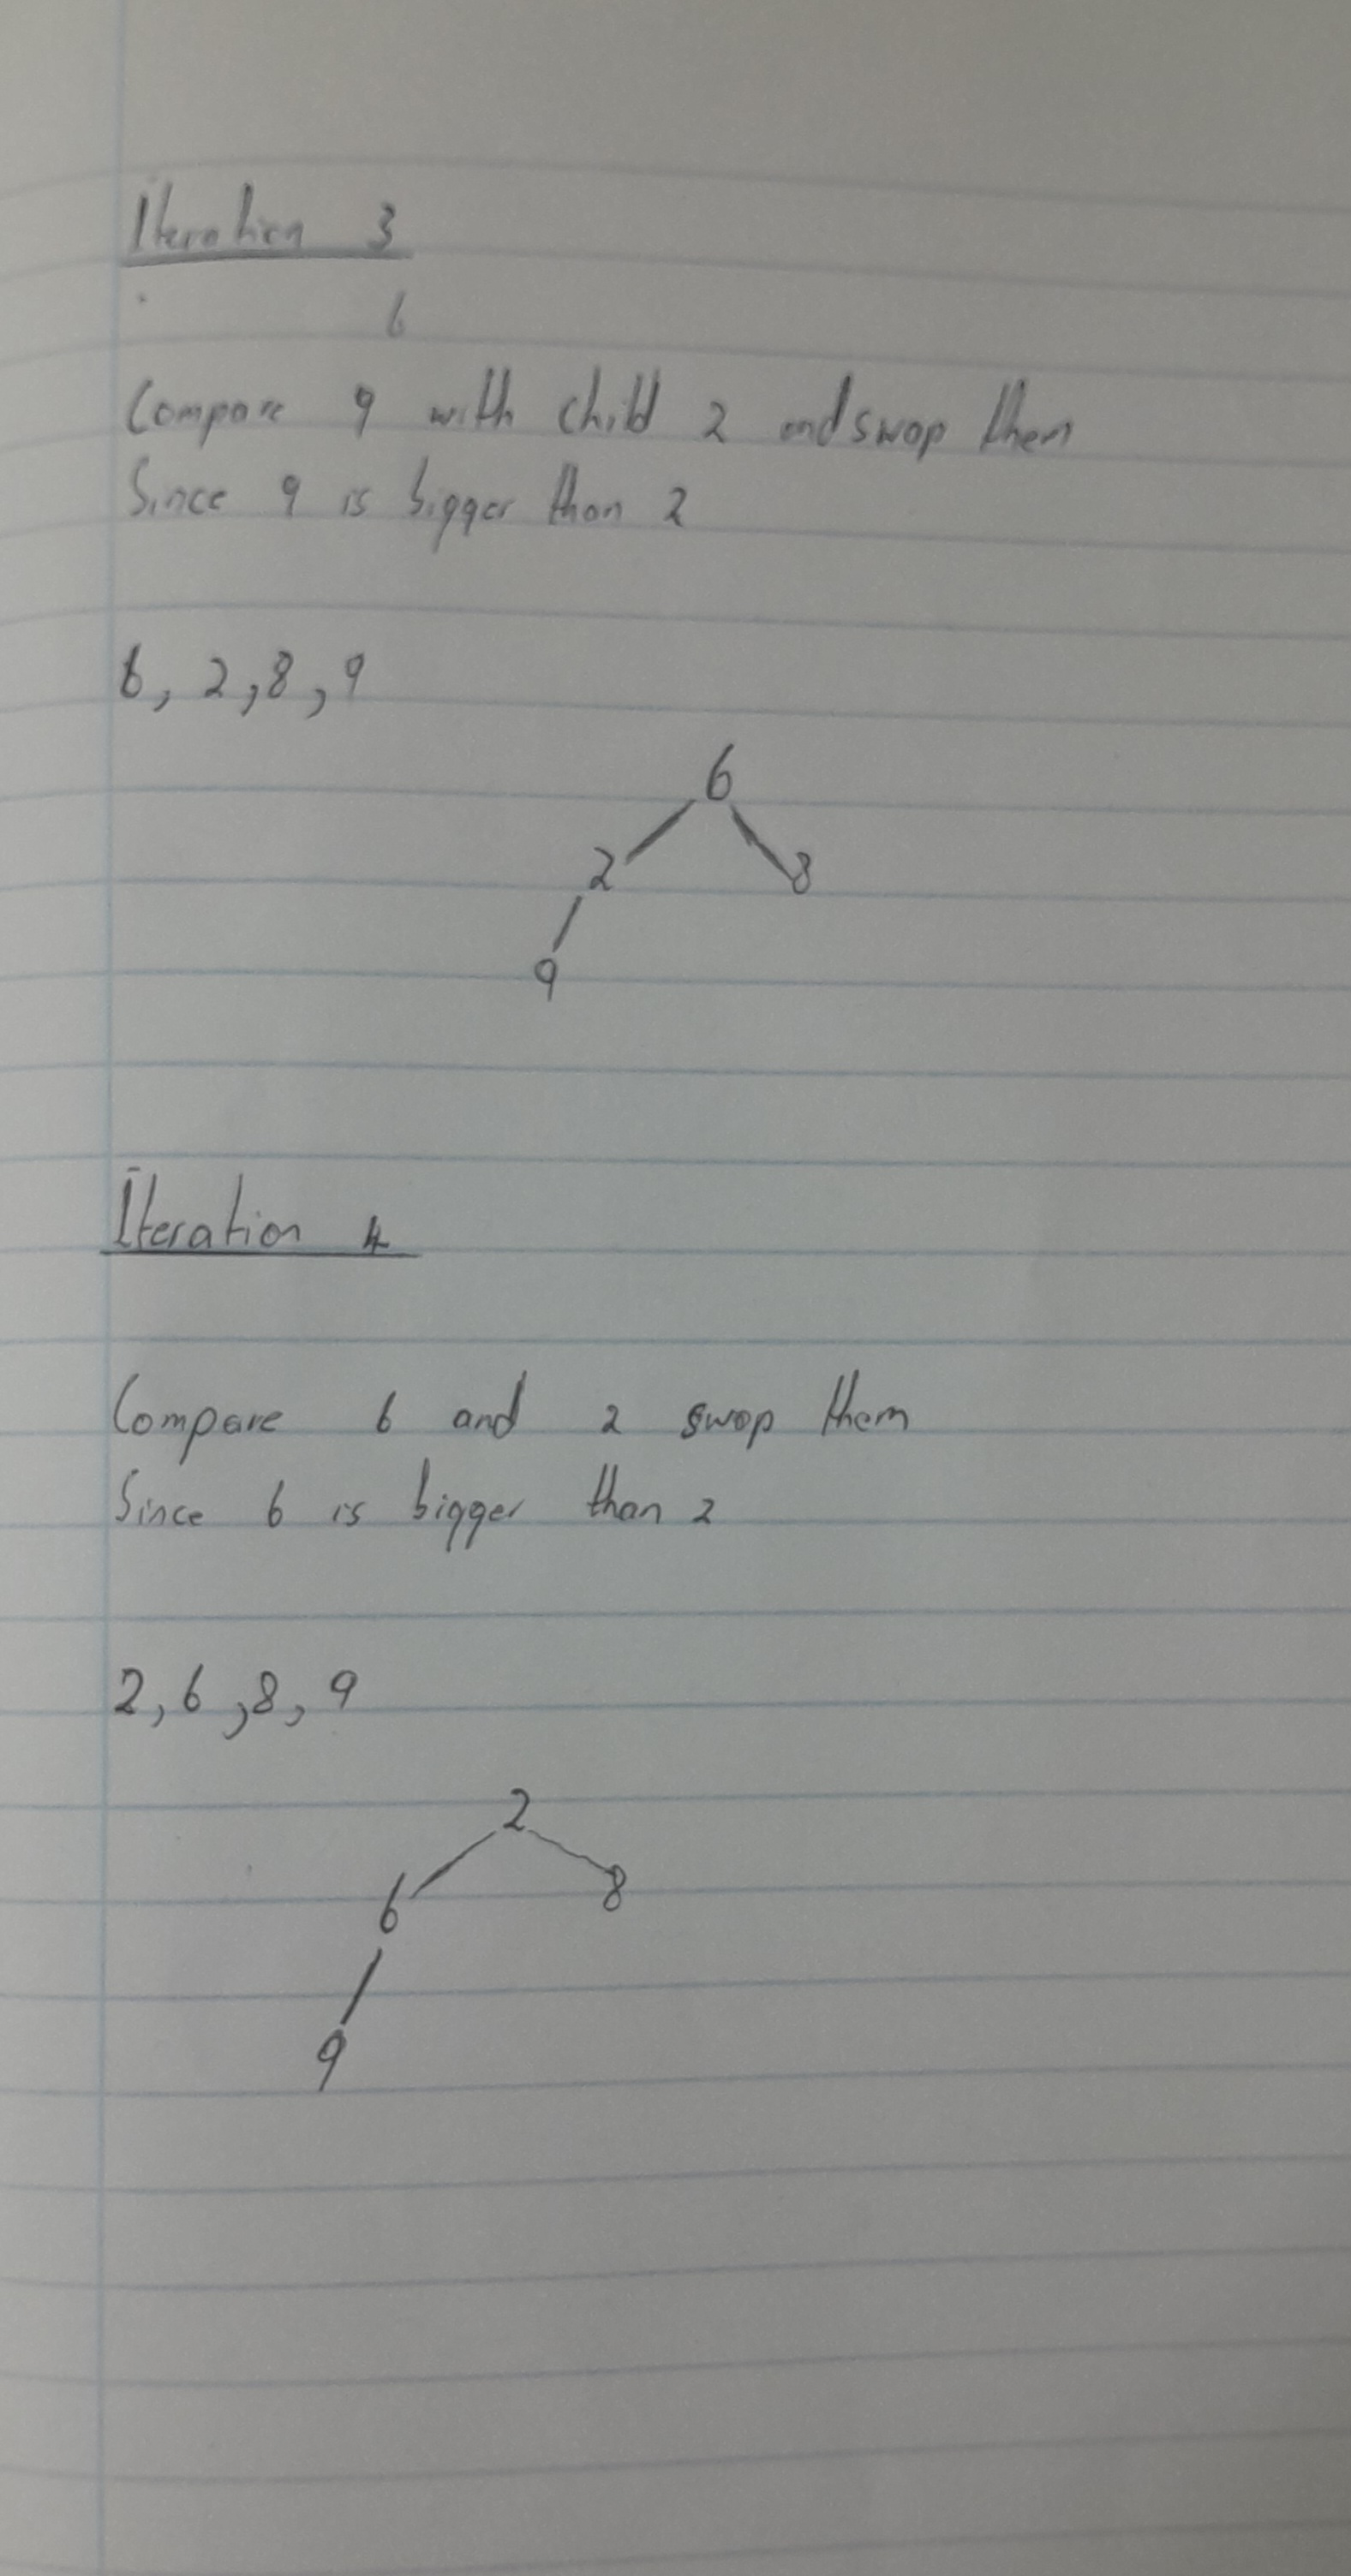 Iteration 3
6
Compare 9 with child 2 and swap them
Since 9 is bigger than 2
6, 2, 8, 9
6
2 8
9
Iteration 4
Compare 6 and 2 swap them
Since 6 is bigger than 2
2, 6, 8, 9
2
6 8
9